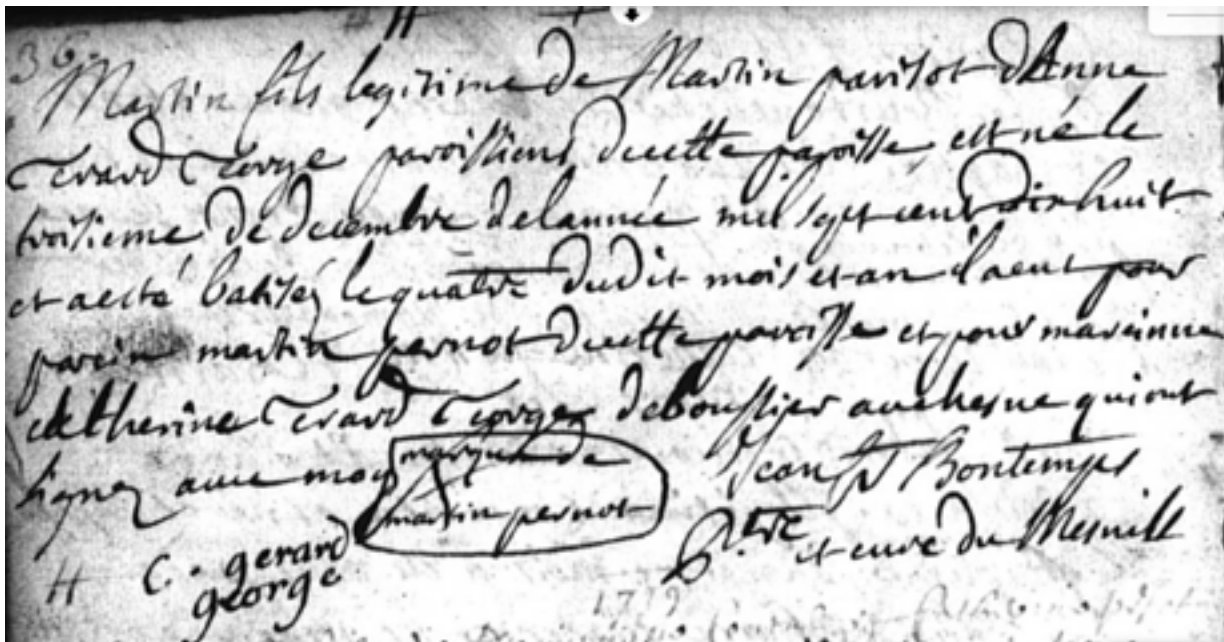 36.
Martin fils legitime de Martin parisot d'Anne
Gerard George paroissiens de cette paroisse est né le
troisieme de decembre de lannée mil sept cent dix huit
et a esté batisez le quatre dudit mois et an il a eut pour
parein martin pernot de cette paroisse et pour mareinne
catherine Gerard George de boussier auchesne qui ont
signez avec moy
marque de
martin pernot
Jean Bontemps
C. gerard
george
et curé du Mesnill
1719